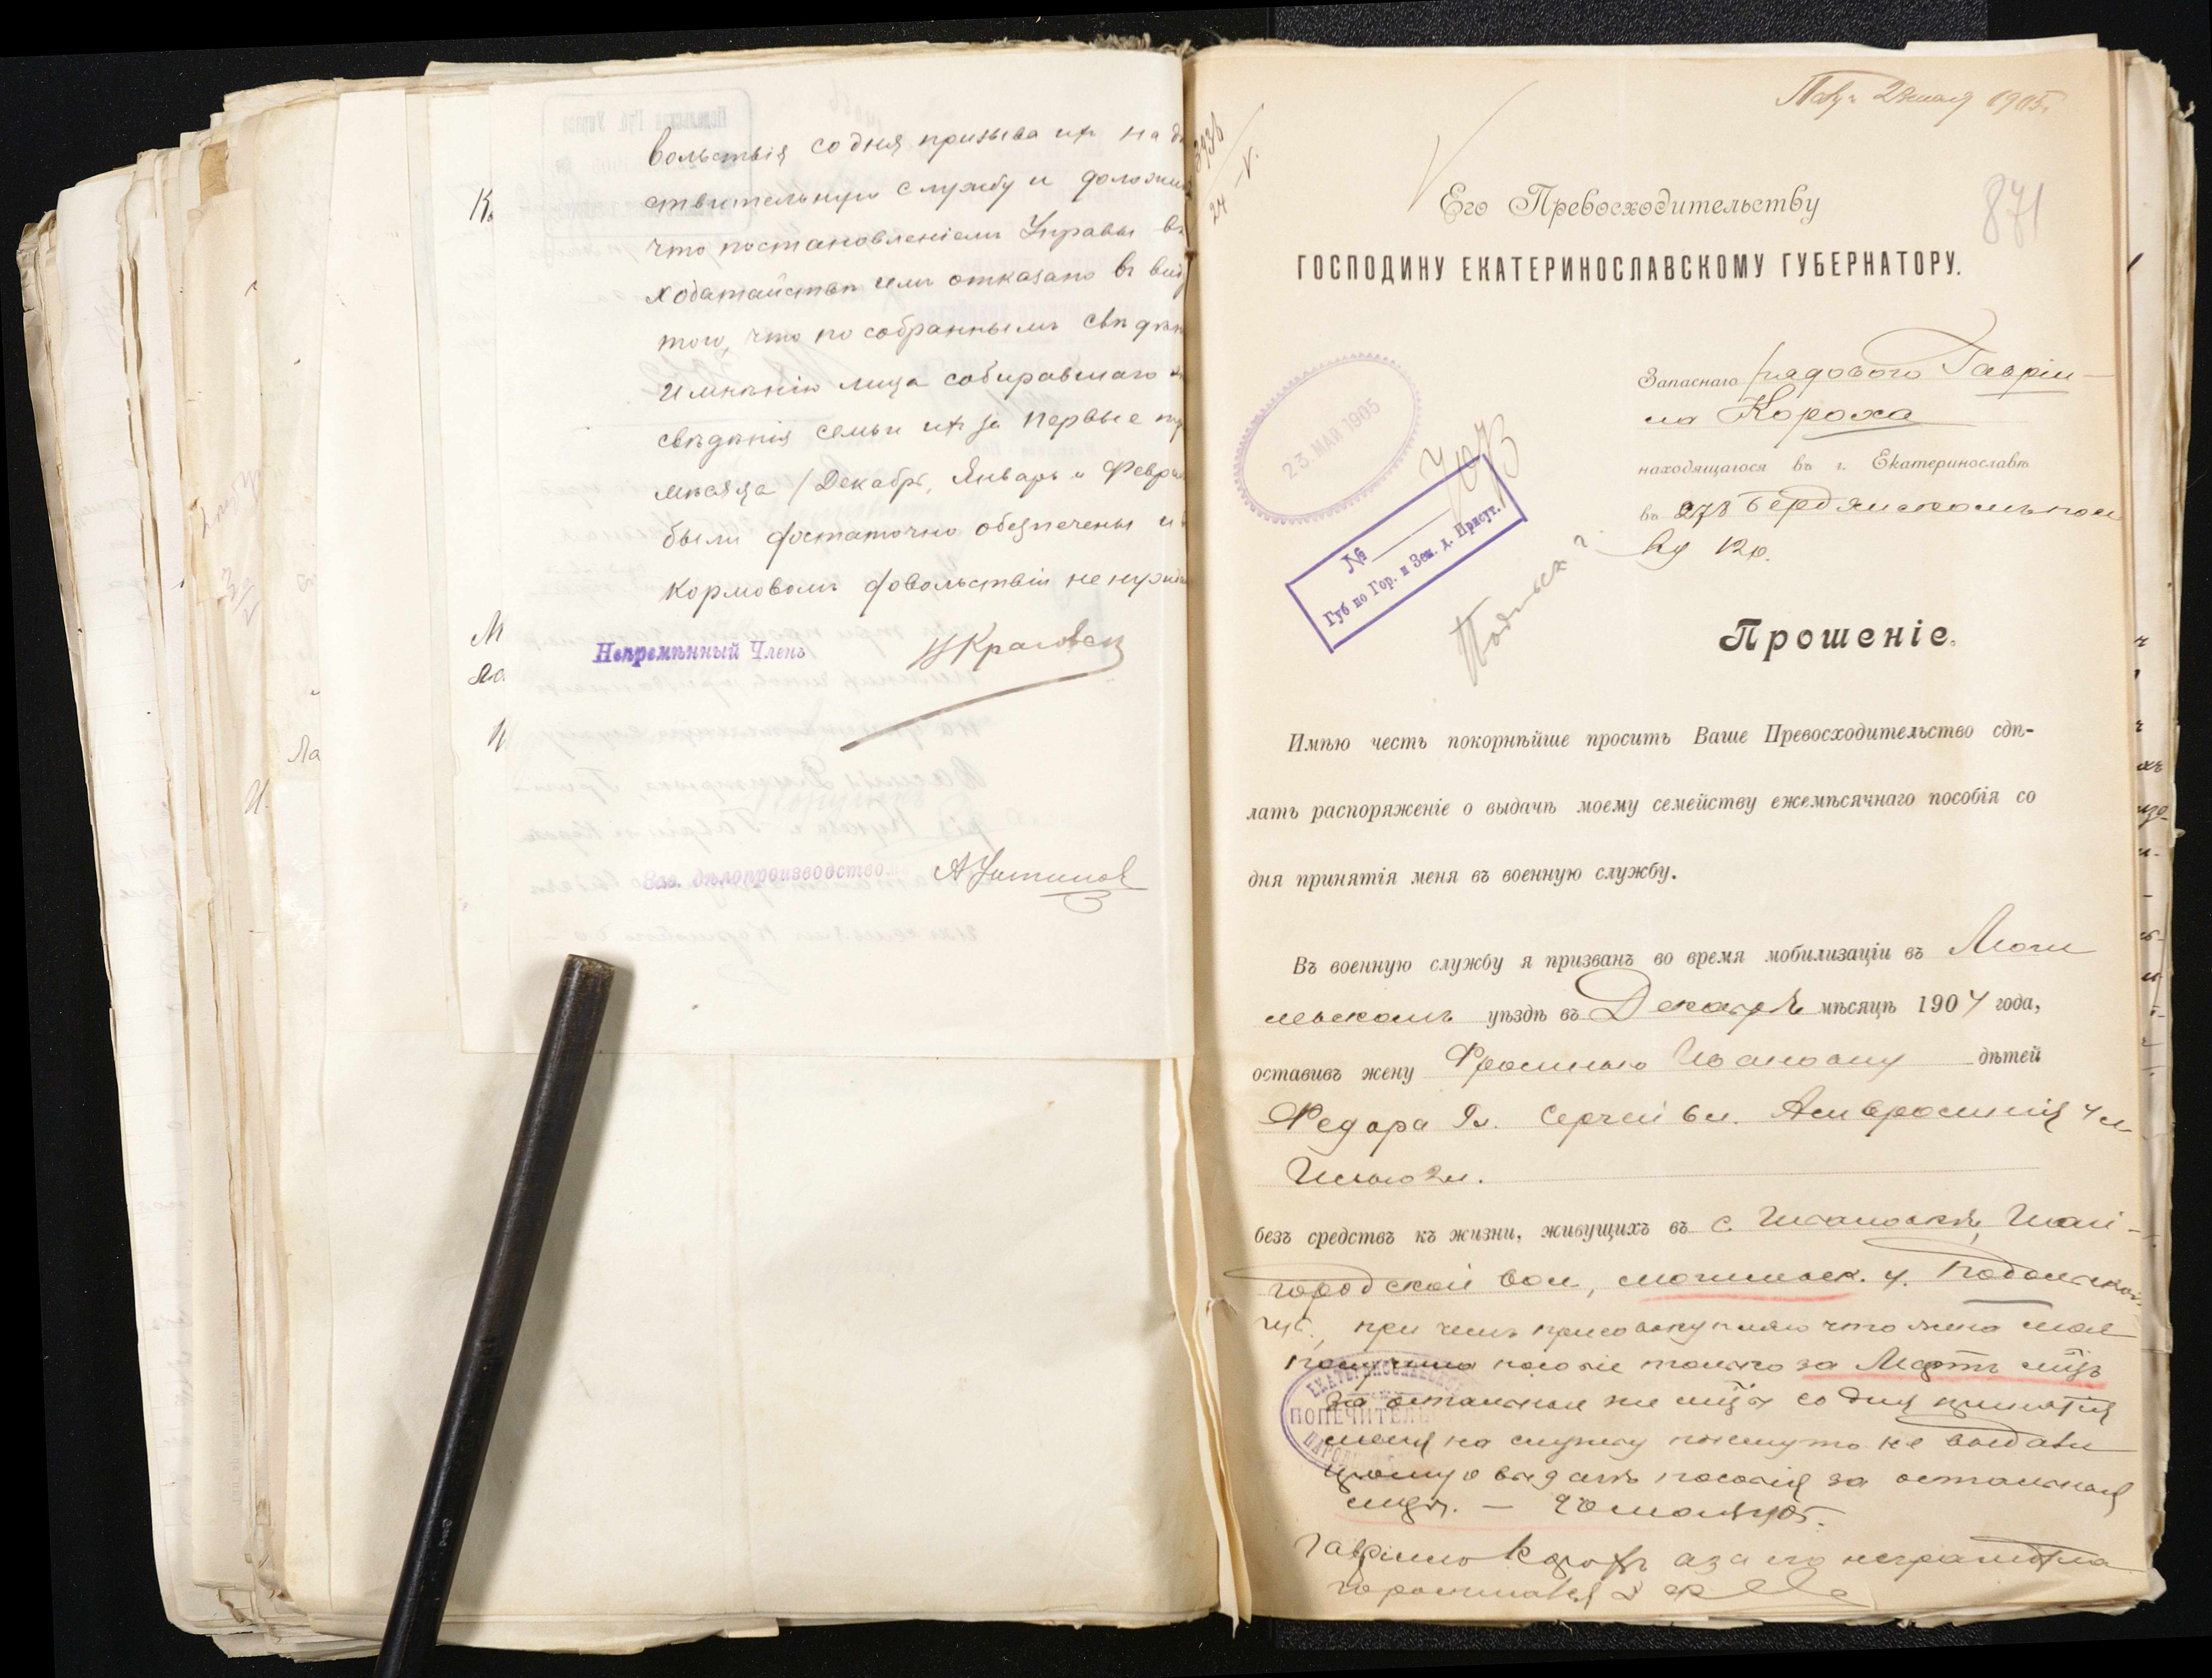 вольствія со дня призыва ихъ на дѣ
ствительную службу и доложи
что постановленіемъ Управы въ
ходатайствѣ имъ отказано въ виду
того, что по собраннымъ свѣдѣн
и мнѣнію лица собиравшаго
свѣдѣнія семьи ихъ за первые
мѣсяца /Декабрь, Январь и Февра
были достаточно обезпечены и
кормовомъ довольствіи не нужд
Непремѣнный Членъ
Зав. дѣлопроизводством
К
М
24 -V.
1905
871
Его Превосходительству
ГОСПОДИНУ ЕКАТЕРИНОСЛАВСКОМУ ГУБЕРНАТОРУ.
Запаснаго рядового Гавріи-
ла Короха
находящагося въ г. Екатеринославѣ
въ 278 Бердянскомъ пол
ку 12 р.
23 МАЙ 1905
№
Губ по Гор. и Зем. д. Присут.
Подольск г.
Прошеніе.
Имѣю честь покорнѣйше просить Ваше Превосходительство сдѣ-
лать распоряженіе о выдачѣ моему семейству ежемѣсячнаго пособія со
дня принятія меня въ военную службу.
Въ военную службу я призванъ во время мобилизаціи въ Моги
левскомъ уѣздѣ въ Декабрѣ мѣсяцѣ 1904 года,
оставивъ жену Фросинью Ивановну дѣтей
Федора Сергей 6 л. Амвросинія 4 л
2 л.
безъ средствъ къ жизни, живущихъ въ с.
городской вол, могилевск. у. Подольской
губ., при чемъ присовокупляю что жена моя
получила пособіе только за Мартъ мѣц
за остальные же мѣц со дня принятія
меня на службу почему то не выдали
прошу о выдать пособія за остальныя
мѣц. —
ЕКАТЕРИНОСЛАВСКОЕ
ПОПЕЧИТЕЛЬ
НАРОД
Гавріило Корохъ а за его неграмотна